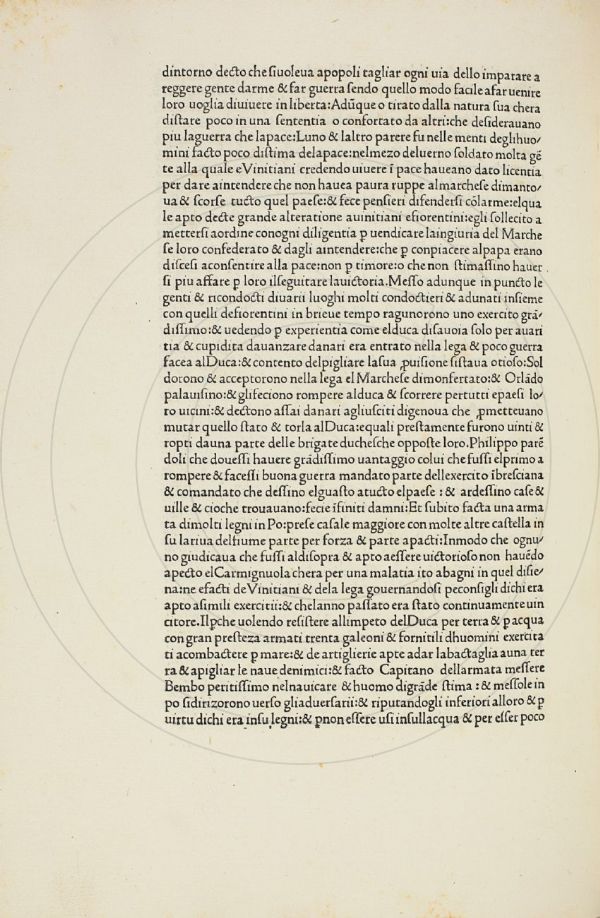 dintorno decto che siuoleua apopoli tagliar ogni uia dello imparare a
reggere gente darme & far guerra sendo quello modo facile afar uenire
loro uoglia diuiuere in liberta: Adũque o tirato dalla natura sua chera
distare poco in una sententia o confortato da altri: che desiderauano
piu laguerra che lapace: Luno & laltro parere fu nelle menti deglihuo/
mini facto poco distima delapace: nelmezo deluerno soldato molta gẽ
te alla quale eVinitiani credendo uiuere ĩ pace haueano dato licentia
per dare aintendere che non hauea paura ruppe almarchese dimanto/
ua & scorse tucto quel paese: & fece pensieri difendersi cõlarme: elqua
le apto decte grande alteratione auinitiani efiorentini: egli sollecito a
mettersi aordine conogni diligentia ꝑ uendicare laingiuria del Marche
se loro confederato & dagli aintendere: che ꝑ conpiacere alpapa erano
discesi aconsentire alla pace: non ꝑ timore: o che non stimassino hauer
si piu affare ꝑ loro ilseguitare lauictoria. Messo adunque in puncto le
genti & ricondocti diuarii luoghi molti condoctieri & adunati insieme
con quelli defiorentini in brieue tempo ragunorono uno exercito grã/
dissimo: & uedendo ꝑ experientia come elduca disauoia solo per auari
tia & cupidita dauanzare danari era entrato nella lega & poco guerra
facea alDuca: & contento delpigliare lasua ꝓuisione sistaua otioso: Sol
dorono & acceptorono nella lega el Marchese dimonferrato: & Orlãdo
palauisino: & glifeciono rompere alduca & scorrere pertutti epaesi lo/
ro uicini: & dectono assai danari agliusciti digenoua che ꝓmetteuano
mutar quello stato & torla alDuca: equali prestamente furono uinti &
ropti dauna parte delle brigate duchesche opposte loro. Philippo parẽ
doli che douessi hauere grãdissimo uantaggio colui che fussi elprimo a
rompere & facessi buona guerra mandato parte dellexercito ĩbresciana
& comandato che dessino elguasto atucto elpaese: & ardessino case &
uille & cioche trouauano: fecie ĩfiniti damni: Et subito facta una arma
ta dimolti legni in Po: prese casale maggiore con molte altre castella in
su lariua delfiume parte per forza & parte apacti: Inmodo che ognu/
no giudicaua che fussi aldisopra & apto aessere uictorioso non hauẽdo
apecto elCarmignuola chera per una malatia ito abagni in quel disie/
na: ne efacti deVinitiani & dela lega gouernandosi peconsigli dichi era
apto asimili exercitii: & chelanno passato era stato continuamente uin
citore. Ilꝑche uolendo resistere allimpeto delDuca per terra & ꝑ acqua
con gran prestezza armati trenta galeoni & fornitili dhuomini exercita
ti acombactere ꝑ mare: & de artiglierie apte adar labactaglia auna ter
ra & apigliar le naue denimici: & facto Capitano dellarmata messere
Bembo peritissimo nelnauicare & huomo digrãde stima: & messole in
po sidirizorono uerso gliaduersarii: & riputandogli inferiori alloro & ꝑ
uirtu dichi era insu legni: & ꝑnon essere usi insullacqua & per esser poco